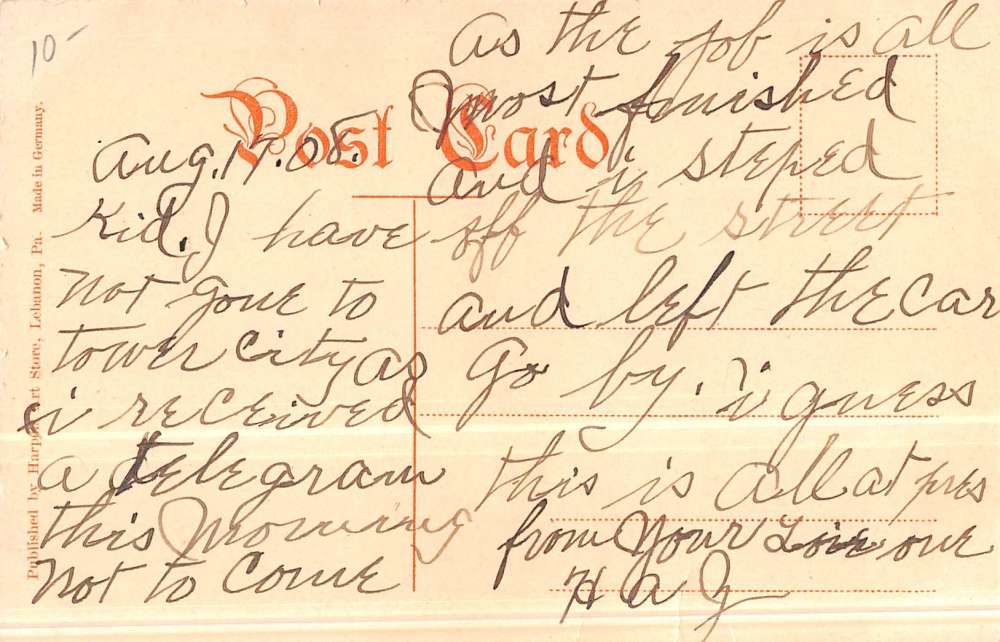 10-
Post Card
Published by Harpel's Art Store, Lebanon, Pa. Made in Germany.
Aug. 17. 08.
Kid. I have
not gone to
tower City as
i received
a telegram
this morning
not to come
as the job is all
most finished
and i steped
off the street
and left the car
go by. i guess
this is all at pres
from your one
H a